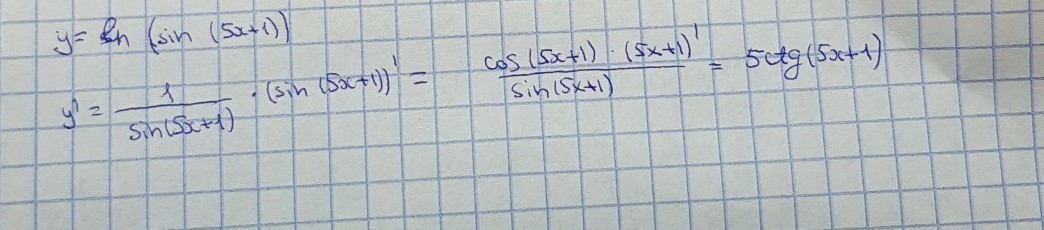 y = ln (sin (5x+1))
y' = 1/sin(5x+1) · (sin (5x+1))' = cos (5x+1) · (5x+1)'/sin(5x+1) = 5ctg(5x+1)